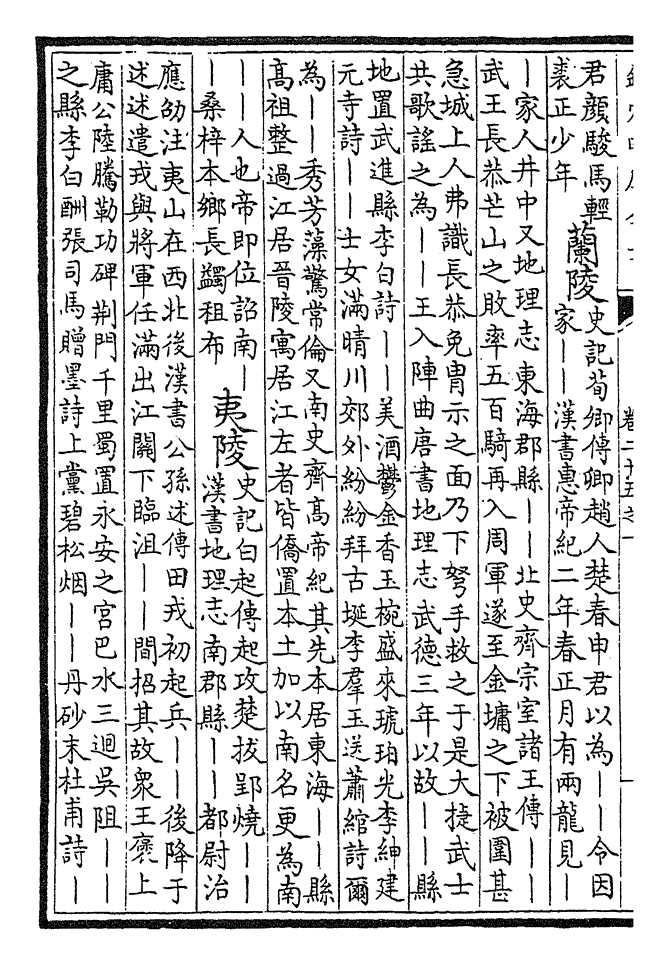 卷二十五之一
君顔駿馬輕
裘正少年
蘭陵
史記荀卿傳卿趙人楚春申君以為——令因
家——漢書惠帝紀二年春正月有兩龍見—
—家人井中又地理志東海郡縣——北史齊宗室諸王傳——
武王長恭芒山之敗率五百騎再入周軍遂至金墉之下被圍甚
急城上人弗識長恭免冑示之面乃下弩手救之于是大捷武士
共歌謠之為——王入陣曲唐書地理志武德三年以故——縣
地置武進縣李白詩——美酒鬱金香玉椀盛來琥珀光李紳建
元寺詩——士女滿晴川郊外紛紛拜古埏李羣玉送蕭綰詩爾
為——秀芳藻驚常倫又南史齊髙帝紀其先本居東海——縣
髙祖整過江居晉陵寓居江左者皆僑置本土加以南名更為南
——人也帝即位詔南—
—桑梓本鄉長蠲租布
夷陵
史記白起傳起攻楚拔郢燒——
漢書地理志南郡縣——都尉治
應劭注夷山在西北後漢書公孫述傳田戎初起兵——後降于
述述遣戎與將軍任滿出江關下臨沮——間招其故衆王褒上
庸公陸騰勒功碑荆門千里蜀置永安之宫巴水三迴吳阻——
之縣李白酬張司馬贈墨詩上黨碧松烟——丹砂末杜甫詩—